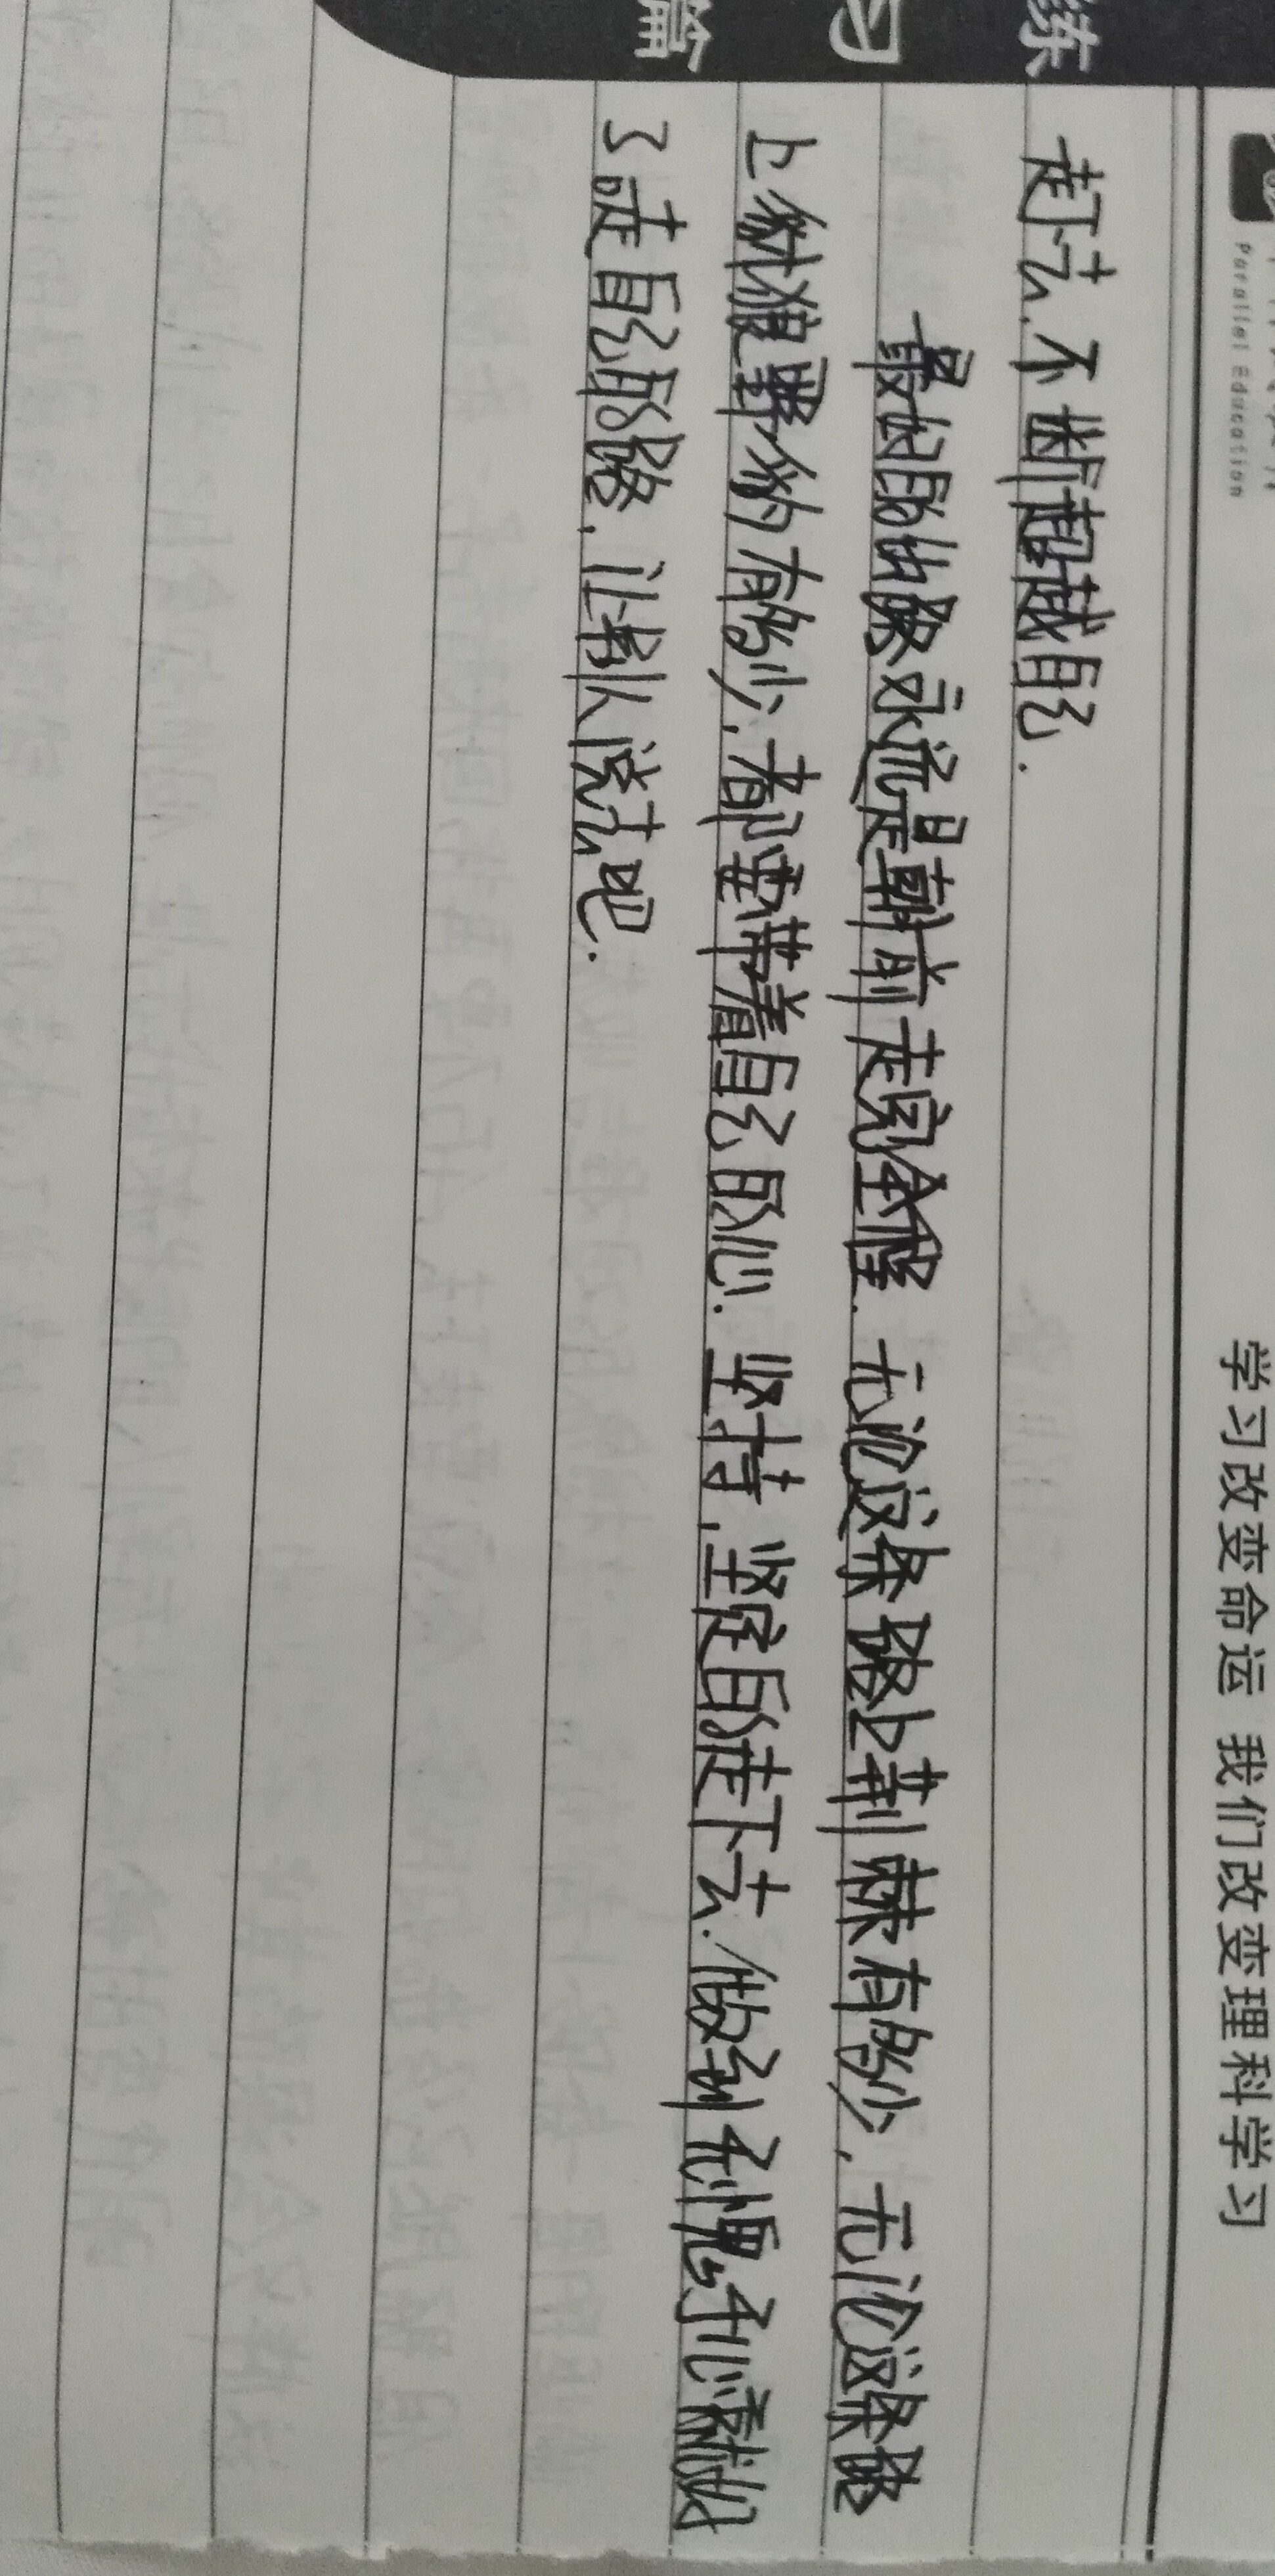 Parallel Education
学习改变命运 我们改变理科学习
练习篇
走下去,不断超越自己.
最好的对象永远是朝前走完全程.无论这条路上荆棘有多少,无论这条路
上豺狼野豹有多少,都要带着自己的心.坚持,坚定的走下去.做到无愧于心就好
了走自己的路,让别人说去吧.